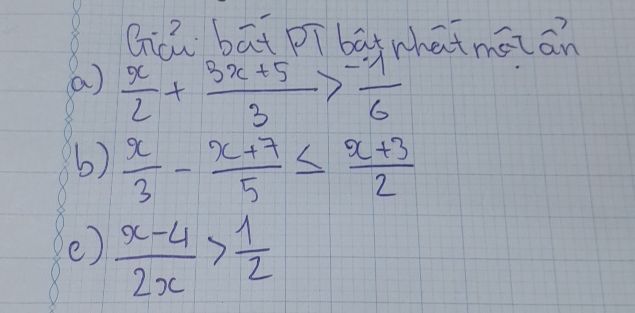 Giải bất PT bật nhất một ẩn
a) x/2 + 3x+5/3 > -1/6
b) x/3 - x+7/5 ≤ x+3/2
c) x-4/2x > 1/2